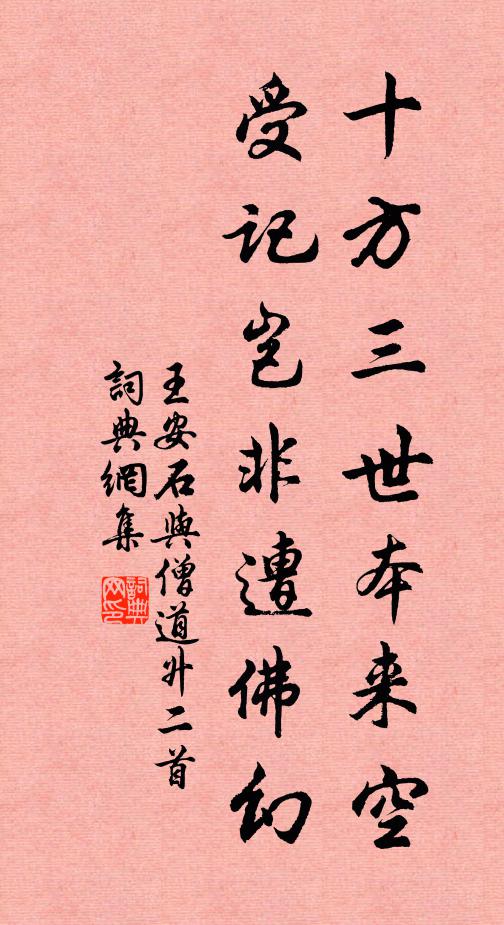 十方三世本来空
受記岂非遭佛幻
王安石與僧道升二首
詞典網集
詞典
网印